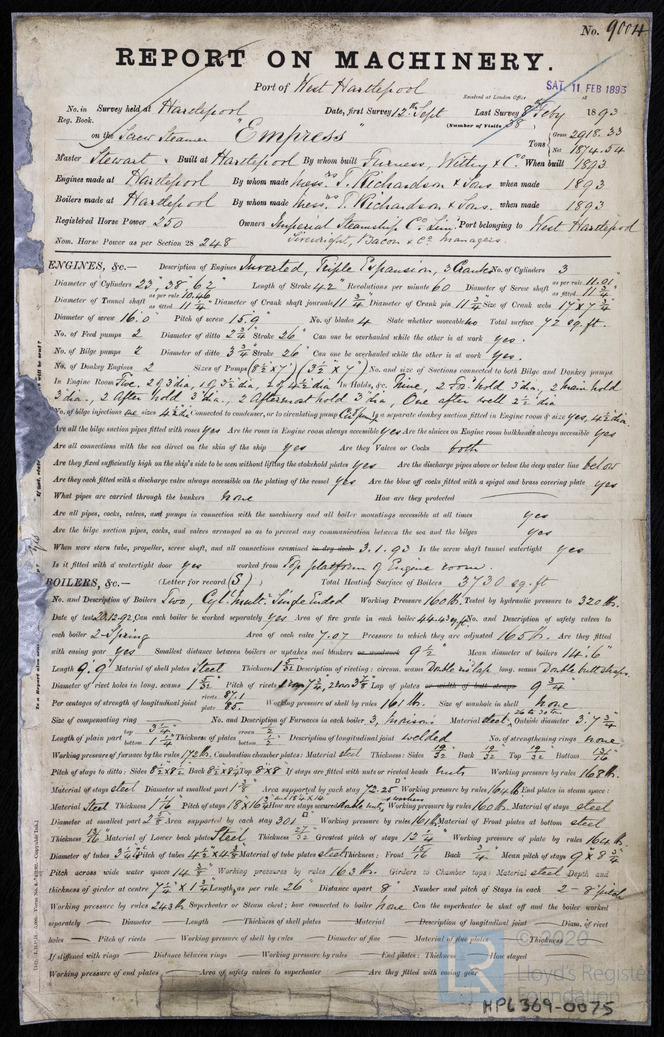 No. 9004
REPORT ON MACHINERY.
Port of West Hartlepool
Received at London Office
SAT. 11 FEB 1893
No. in Survey held at Hartlepool Date, first Survey 12th Sept Last Survey 8th Feby 1893
Reg. Book. (Number of Visits 38)
on the Screw Steamer "Empress" Tons { Gross 2918.33
Net 1874.54
Master Stewart Built at Hartlepool By whom built Furness, Withy & Co. When built 1893
Engines made at Hartlepool By whom made Messrs T. Richardson & Sons when made 1893
Boilers made at Hartlepool By whom made Messrs T. Richardson & Sons. when made 1893
Registered Horse Power 250 Owners Imperial Steamship Co. Lim. Port belonging to West Hartlepool
Nom. Horse Power as per Section 28 248 Sivewright, Bacon & Co. Managers.
ENGINES, &c.— Description of Engines Inverted, Triple Expansion, 3 Cranks No. of Cylinders 3
Diameter of Cylinders 23", 38", 62" Length of Stroke 42" Revolutions per minute 60 Diameter of Screw shaft as per rule 11.01 as fitted 11 3/4"
Diameter of Tunnel shaft as per rule 10.46 as fitted 11 1/4" Diameter of Crank shaft journals 11 3/4" Diameter of Crank pin 11 3/4" Size of Crank webs 17" x 7 3/4"
Diameter of screw 16'.0" Pitch of screw 15'.9" No. of blades 4 State whether moveable no Total surface 72 sq. ft.
No. of Feed pumps 2 Diameter of ditto 2 3/4" Stroke 26" Can one be overhauled while the other is at work yes.
No. of Bilge pumps 2 Diameter of ditto 3 3/4" Stroke 26" Can one be overhauled while the other is at work yes.
No. of Donkey Engines 2 Sizes of Pumps (8 1/2" x 7") (3 1/2" x 7") No. and size of Suctions connected to both Bilge and Donkey pumps
In Engine Room Five, 2 @ 3 dia, 1 @ 3 1/2 dia, 2 @ 4 1/2 dia In Holds, &c. Nine, 2 For. hold 3" dia., 2 main hold
3" dia., 2 After hold 3" dia., 2 Aftermost hold 3" dia, One after well 2 1/2 dia
No. of bilge injections one sizes 4 1/2 dia Connected to condenser, or to circulating pump Is a separate donkey suction fitted in Engine room & size yes, 4 1/2 dia
Are all the bilge suction pipes fitted with roses yes Are the roses in Engine room always accessible yes Are the sluices on Engine room bulkheads always accessible yes
Are all connections with the sea direct on the skin of the ship yes Are they Valves or Cocks both
Are they fixed sufficiently high on the ship's side to be seen without lifting the stokehold plates yes Are the discharge pipes above or below the deep water line below
Are they each fitted with a discharge valve always accessible on the plating of the vessel yes Are the blow off cocks fitted with a spigot and brass covering plate yes
What pipes are carried through the bunkers none How are they protected
Are all pipes, cocks, valves, and pumps in connection with the machinery and all boiler mountings accessible at all times yes
Are the bilge suction pipes, cocks, and valves arranged so as to prevent any communication between the sea and the bilges yes
When were stern tube, propeller, screw shaft, and all connections examined in dry dock 3.1.93 Is the screw shaft tunnel watertight yes
Is it fitted with a watertight door yes worked from Top platform of Engine room.
BOILERS, &c.— (Letter for record (S)) Total Heating Surface of Boilers 3730 sq. ft
No. and Description of Boilers Two, Cyl. mult. Single Ended Working Pressure 160 lb. Tested by hydraulic pressure to 320 lb.
Date of test 20.12.92 Can each boiler be worked separately yes Area of fire grate in each boiler 44.43 sq. ft. No. and Description of safety valves to
each boiler 2 - Spring Area of each valve 7.07 Pressure to which they are adjusted 165 lb. Are they fitted
with easing gear yes Smallest distance between boilers or uptakes and bunkers or woodwork 9 1/2" Mean diameter of boilers 14'.6"
Length 9'.9" Material of shell plates Steel Thickness 1 5/32" Description of riveting: circum. seams Double riv. lap long. seams Double butt straps.
Diameter of rivet holes in long. seams 1 5/32" Pitch of rivets Lap of plates or width of butt straps 9 3/4"
Per centages of strength of longitudinal joint rivets 87.1 plate 85. Working pressure of shell by rules 161 lb. Size of manhole in shell none
Size of compensring ring No. and Description of Furnaces in each boiler 3, Material steel. Outside diameter 3'.7 3/4"
Length of plain part top bottom Thickness of plates crown 1/2" bottom 1/2" Description of longitudinal joint welded No. of strengthening rings none
Working pressure of furnace by the rules 172 lb. Combustion chamber plates: Material steel Thickness: Sides 19/32" Back 19/32" Top 19/32" Bottom 13/16"
Pitch of stays to ditto: Sides 8 1/2 x 8 1/2 Back 8 1/2 x 8 1/4 Top 8" x 8" If stays are fitted with nuts or riveted heads nuts Working pressure by rules 168 lb.
Material of stays steel Diameter at smallest part 1 3/8" Area supported by each stay 72.25" Working pressure by rules 164 lb End plates in steam space:
Material Steel Thickness 1 1/16" Pitch of stays How are stays secured double nuts, & washers Working pressure by rules 160 lb. Material of stays steel
Diameter at smallest part 2 5/8" Area supported by each stay 301" Working pressure by rules 161 lb. Material of Front plates at bottom steel
Thickness 13/16" Material of Lower back plate Steel Thickness 27/32" Greatest pitch of stays 12 1/4" Working pressure of plate by rules 164 lb.
Diameter of tubes 3 1/4" Pitch of tubes 4 1/2" x 4 3/8" Material of tube plates steel Thickness: Front 15/16" Back 3/4" Mean pitch of stays 9" x 8 3/4"
Pitch across wide water spaces 14 3/8" Working pressures by rules 163 lb. Girders to Chamber tops: Material steel Depth and
thickness of girder at centre 7 1/2" x 1 3/4" Length as per rule 26" Distance apart 8" Number and pitch of Stays in each 2 - 8" pitch
Working pressure by rules 243 lb Superheater or Steam chest; how connected to boiler none Can the superheater be shut off and the boiler worked
separately — Diameter — Length — Thickness of shell plates — Material — Description of longitudinal joint — Diam. of rivet
holes — Pitch of rivets — Working pressure of shell by rules — Diameter of flue — Material of flue plates — Thickness —
If stiffened with rings — Distance between rings — Working pressure by rules — End plates: Thickness — How stayed
Working pressure of end plates — Area of safety valves to superheater — Are they fitted with easing gear
© 2020
LR
Lloyd's Register
Foundation
HPL369-0075